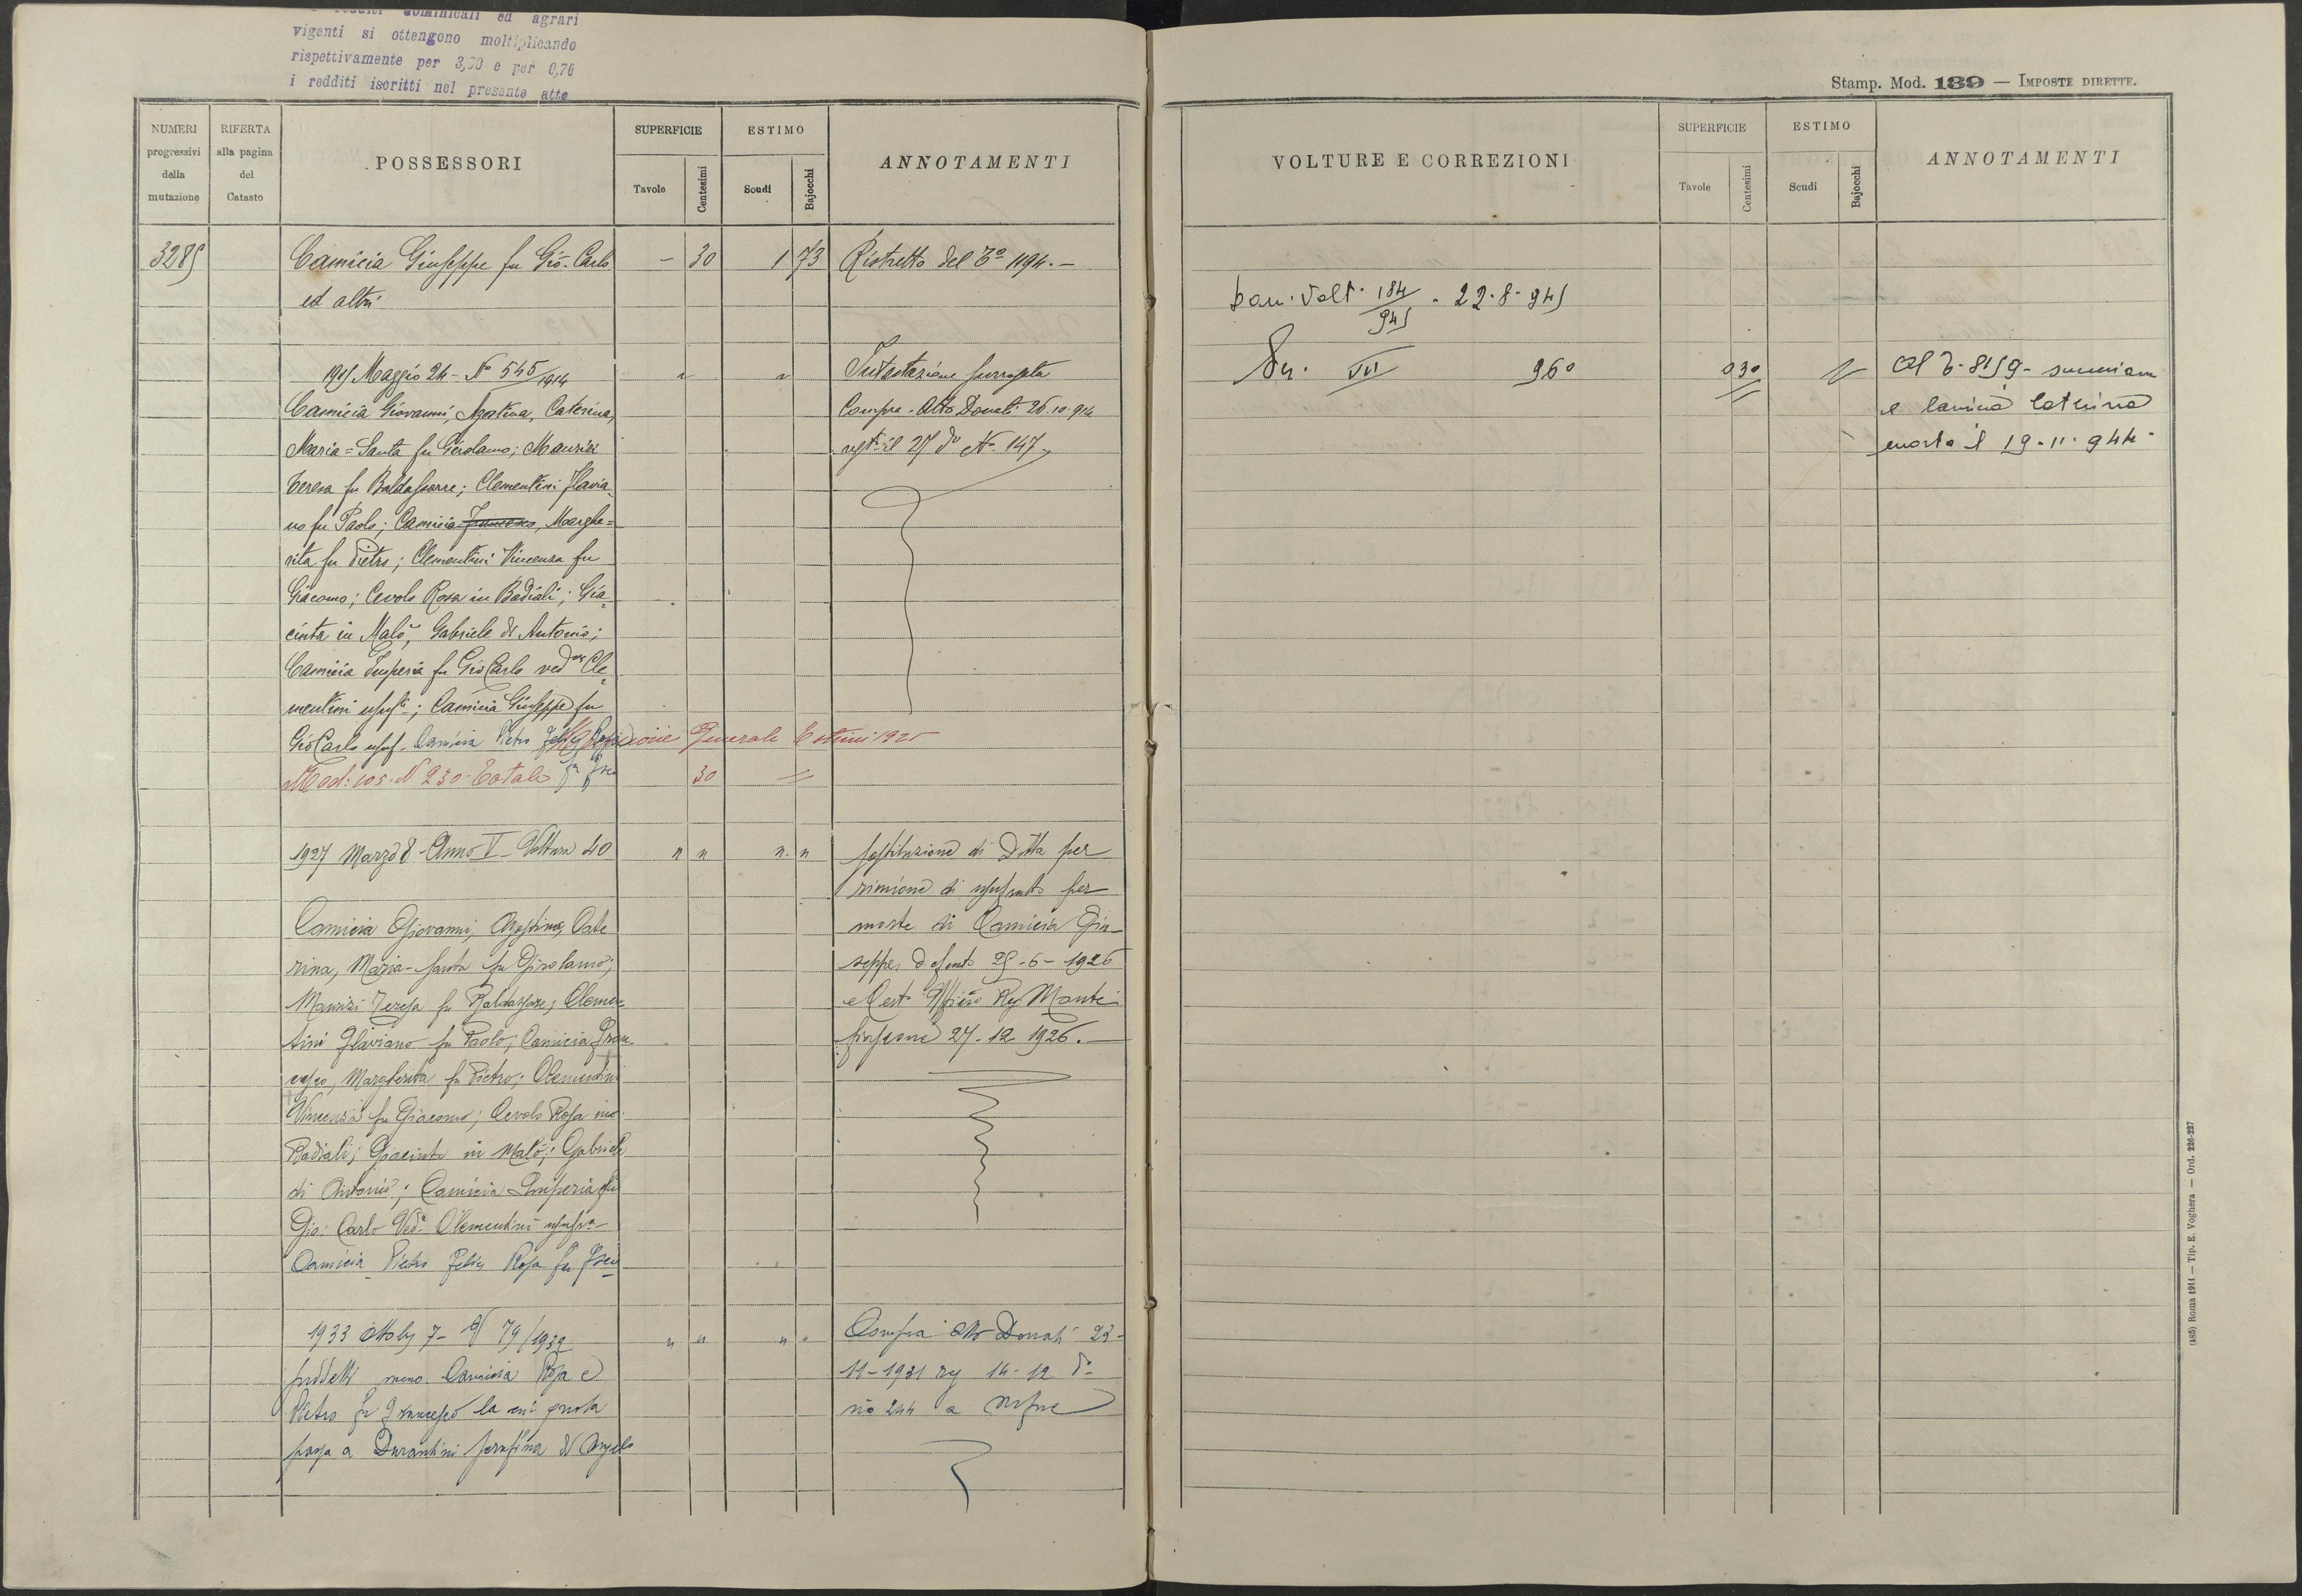 redditi dominicali ed agrari
vigenti si ottengono moltiplicando
rispettivamente per 3,00 e per 0,76
i redditi iscritti nel presente atto
NUMERI progressivi della mutazione
RIFERTA alla pagina del Catasto
POSSESSORI
SUPERFICIE
Tavole
Centesimi
ESTIMO
Scudi
Bajocchi
ANNOTAMENTI
3285
Camicia Giuseppe fu Gio-Carlo - 30 1 73 Ristretto del Tº 1194.-
ed altri
1915 Maggio 24 - Nº 545/1914 Intestazione surrogata
Camicia Giovanni, Agostina, Caterina, Compra - Atto Donati 26.10.914
Maria=Santa fu Girolamo; Maurizi il 27 do Nº 147
Teresa fu Baldassarre; Clementini Flavia-
no fu Paolo; Camicia Francesco, Marghe=
rita fu Pietro; Clementini Vincenza fu
Giacomo; Cevolo Rosa in Badiali; Gia-
cinta in Malò, Gabriele di Antonio;
Camicia Imperia fu Gio Carlo ved Cle-
mentini ; Camicia Giuseppe fu
Gio Carlo usuf. Camicia Pietro Generale Estimi 192
Mod: 105. N 230. Totale 30
1927 Marzo 8 - Anno V - Voltura 40 " " " " Sostituzione di Ditta per
riunione di usufrutto per
Camicia Giovanni, Agostina, Cate morte di Camicia Giu-
rina, Maria-Santa fu Girolamo; seppe, defunto 25-6-1926
Maurizi Teresa fu Baldassare; Clemen- Uff Reg Monte
tini Flaviano fu Paolo; Camicia Fran- fiascone 27-12 1926.-
cesco, Margherita fu Pietro; Clementini
Vincenza fu Giacomo; Cevolo Rosa in
Badiali; Giacinta in Malò; Gabriele
di Antonio; Camicia Imperia fu
Gio: Carlo Veda Clementini
Camicia Pietro Felice Rosa fu
1933 7- 79/1932 " " " " Compra Atto Donati 23-
meno Camicia Rosa e 11-1931 reg 14-12 do
Pietro fu Francesco la cui quota no 244 a
passa a Durantini Serafina di Angelo
Stamp. Mod. 139 — IMPOSTE DIRETTE.
VOLTURE E CORREZIONI
SUPERFICIE
Tavole
Centesimi
ESTIMO
Scudi
Bajocchi
ANNOTAMENTI
Volt. 184/945 . 22.8.945
VII 960 030 Al T. 8159 -
e Camicia Caterina
morta il 19.11.944.
(485) Roma 1911 — Tip. E. Voghera — Ord. 226-227